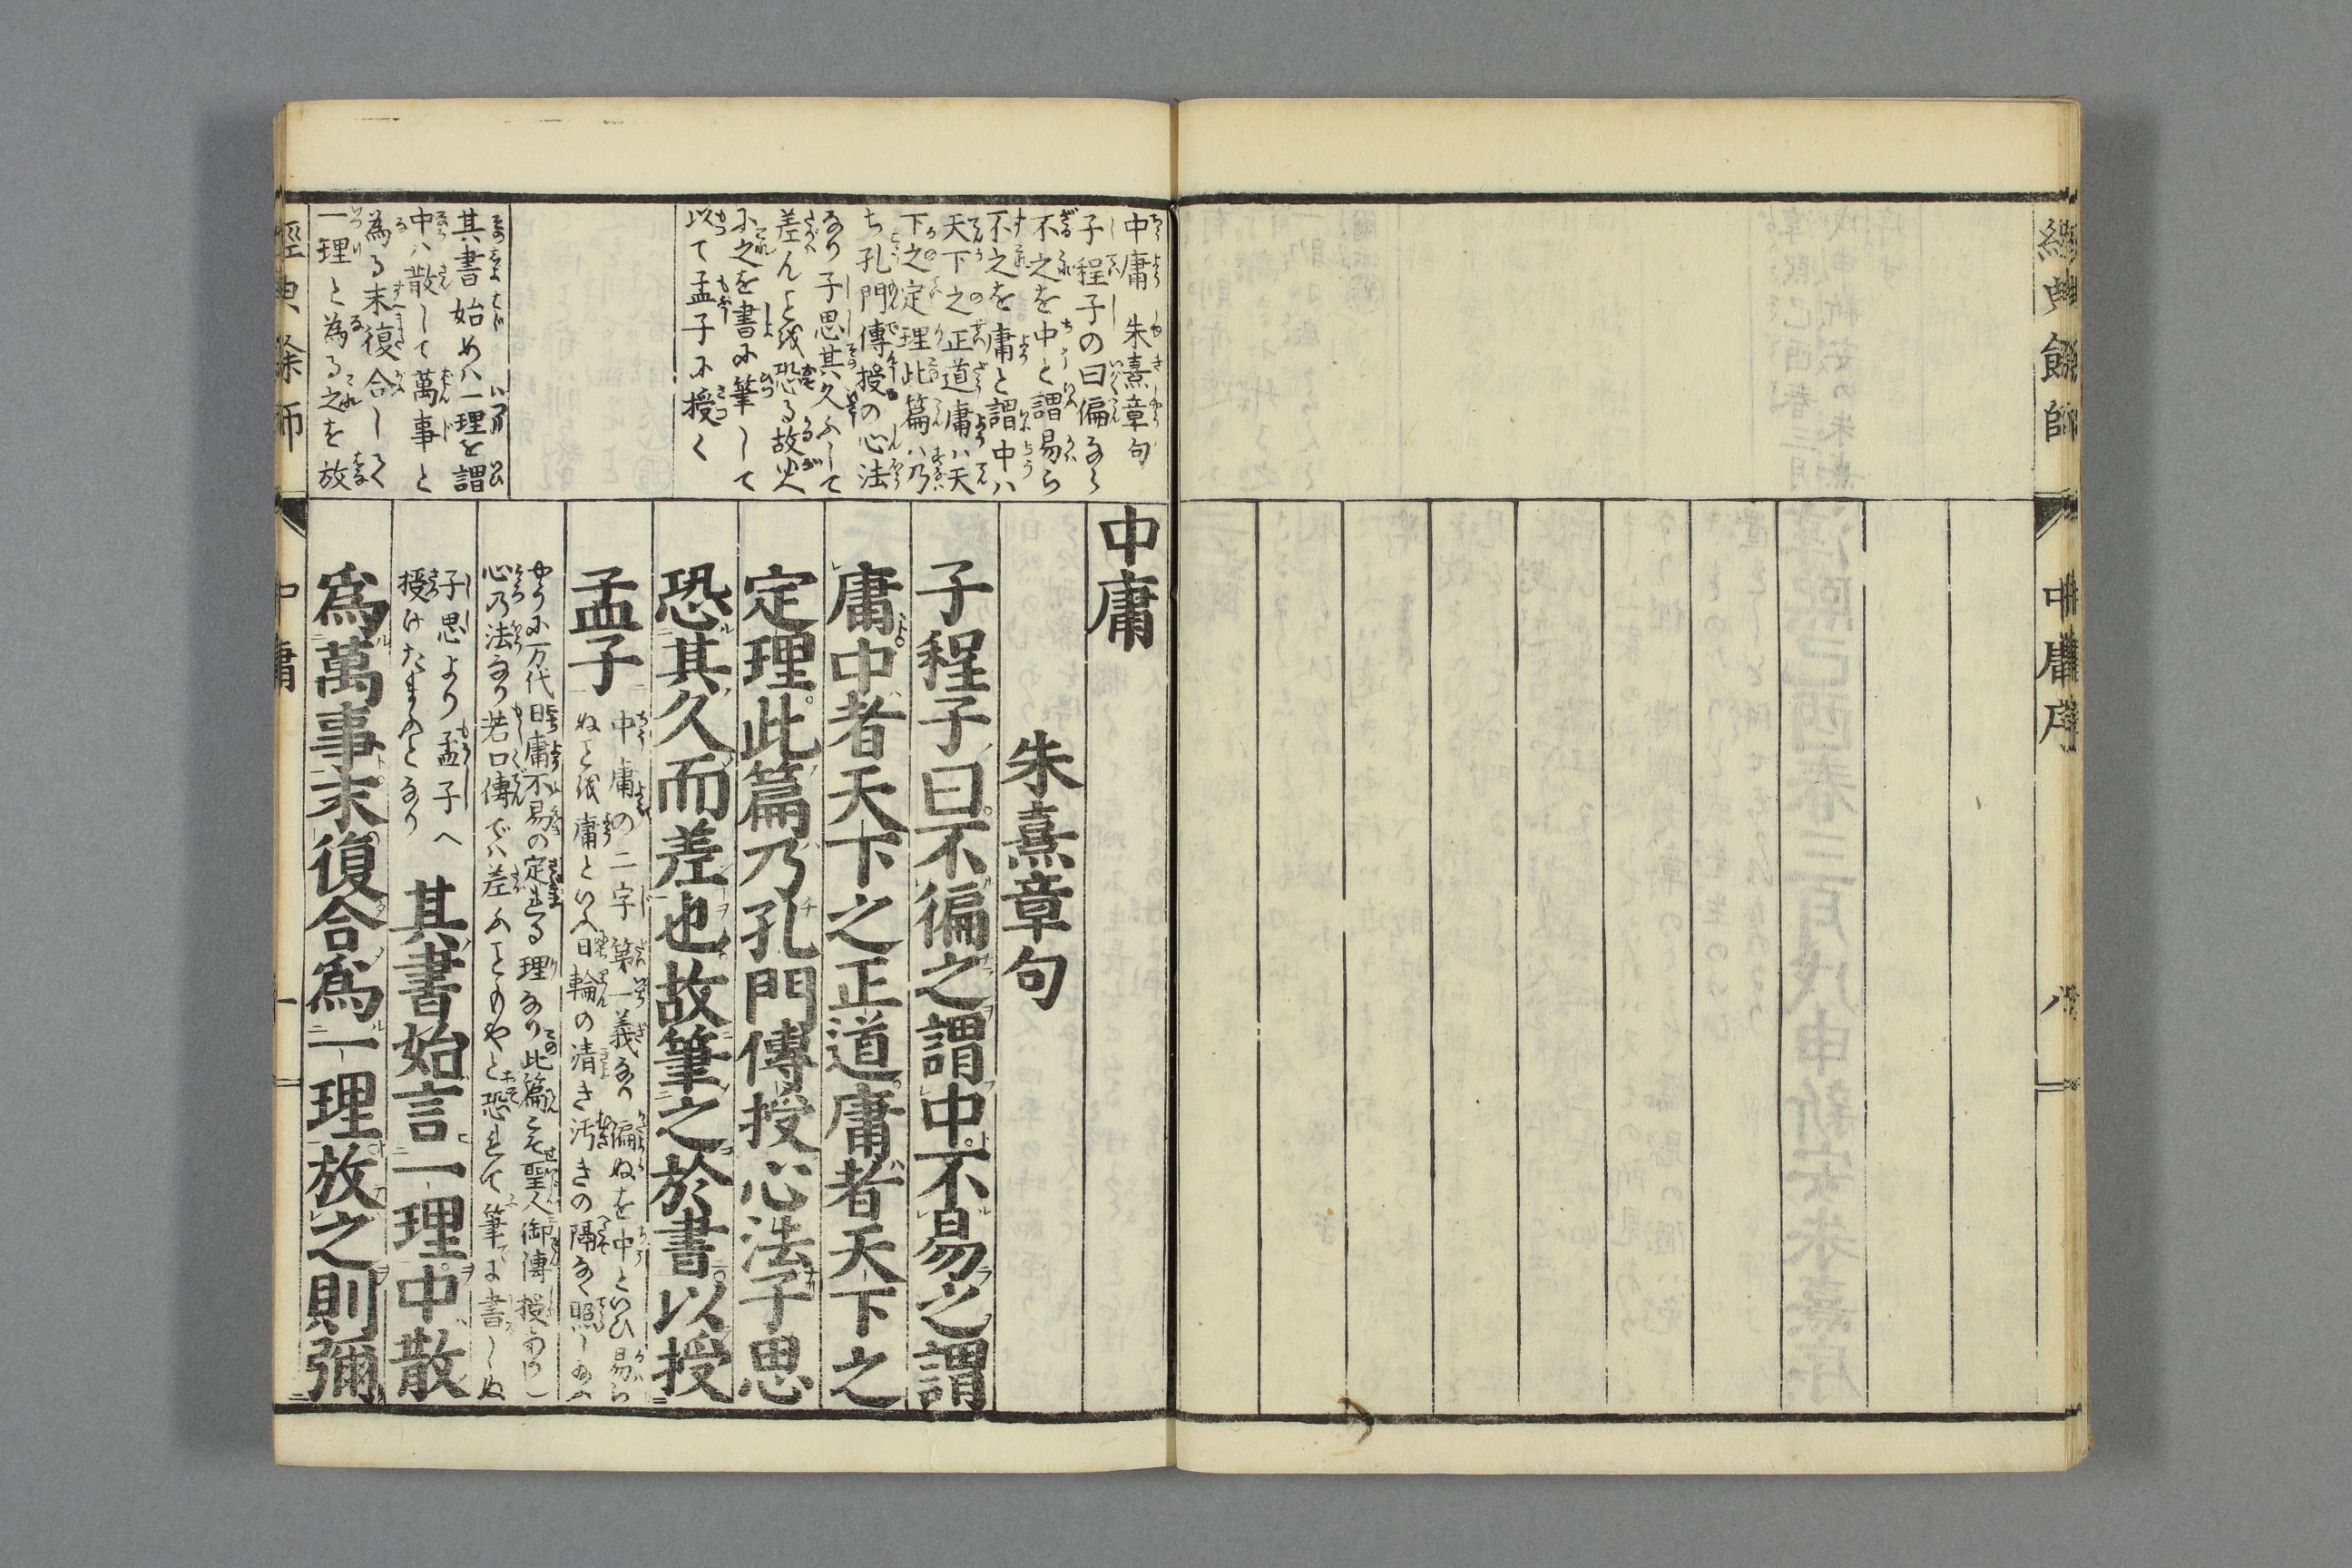 經典餘師
中庸序
八
中庸
朱熹章句
子程子曰不偏之謂中不易之謂
庸中者天下之正道庸者天下之
定理此篇乃孔門傳授心法子思
恐其久而差也故筆之於書以授
孟子
中庸の二字第一義なり偏ぬを中といひ易ら
ぬを庸といふ日輪の清き汚きの隔なく照し
万代日庸不易の定まれる理なり此篇こそ聖人御傳授
心乃法なり若口傳でハ差ふこともやと恐れて筆に書しぬ
子思より孟子へ
授けたまふとなり
其書始言一理中散
爲萬事末復合爲一理放之則彌
中庸朱熹章句
子程子の曰偏なら
不之を中と謂易ら
不之を庸と謂中ハ
天下之正道庸ハ天
下之定理此篇ハ乃
ち孔門傳授の心法
なり子思其久ふして
差んことを恐る故
に之を書に筆して
以て孟子に授く
其書始めハ一理を謂
中ハ散して萬事と
為る末復合して
一理と為る之を放
經典餘師
中庸
一